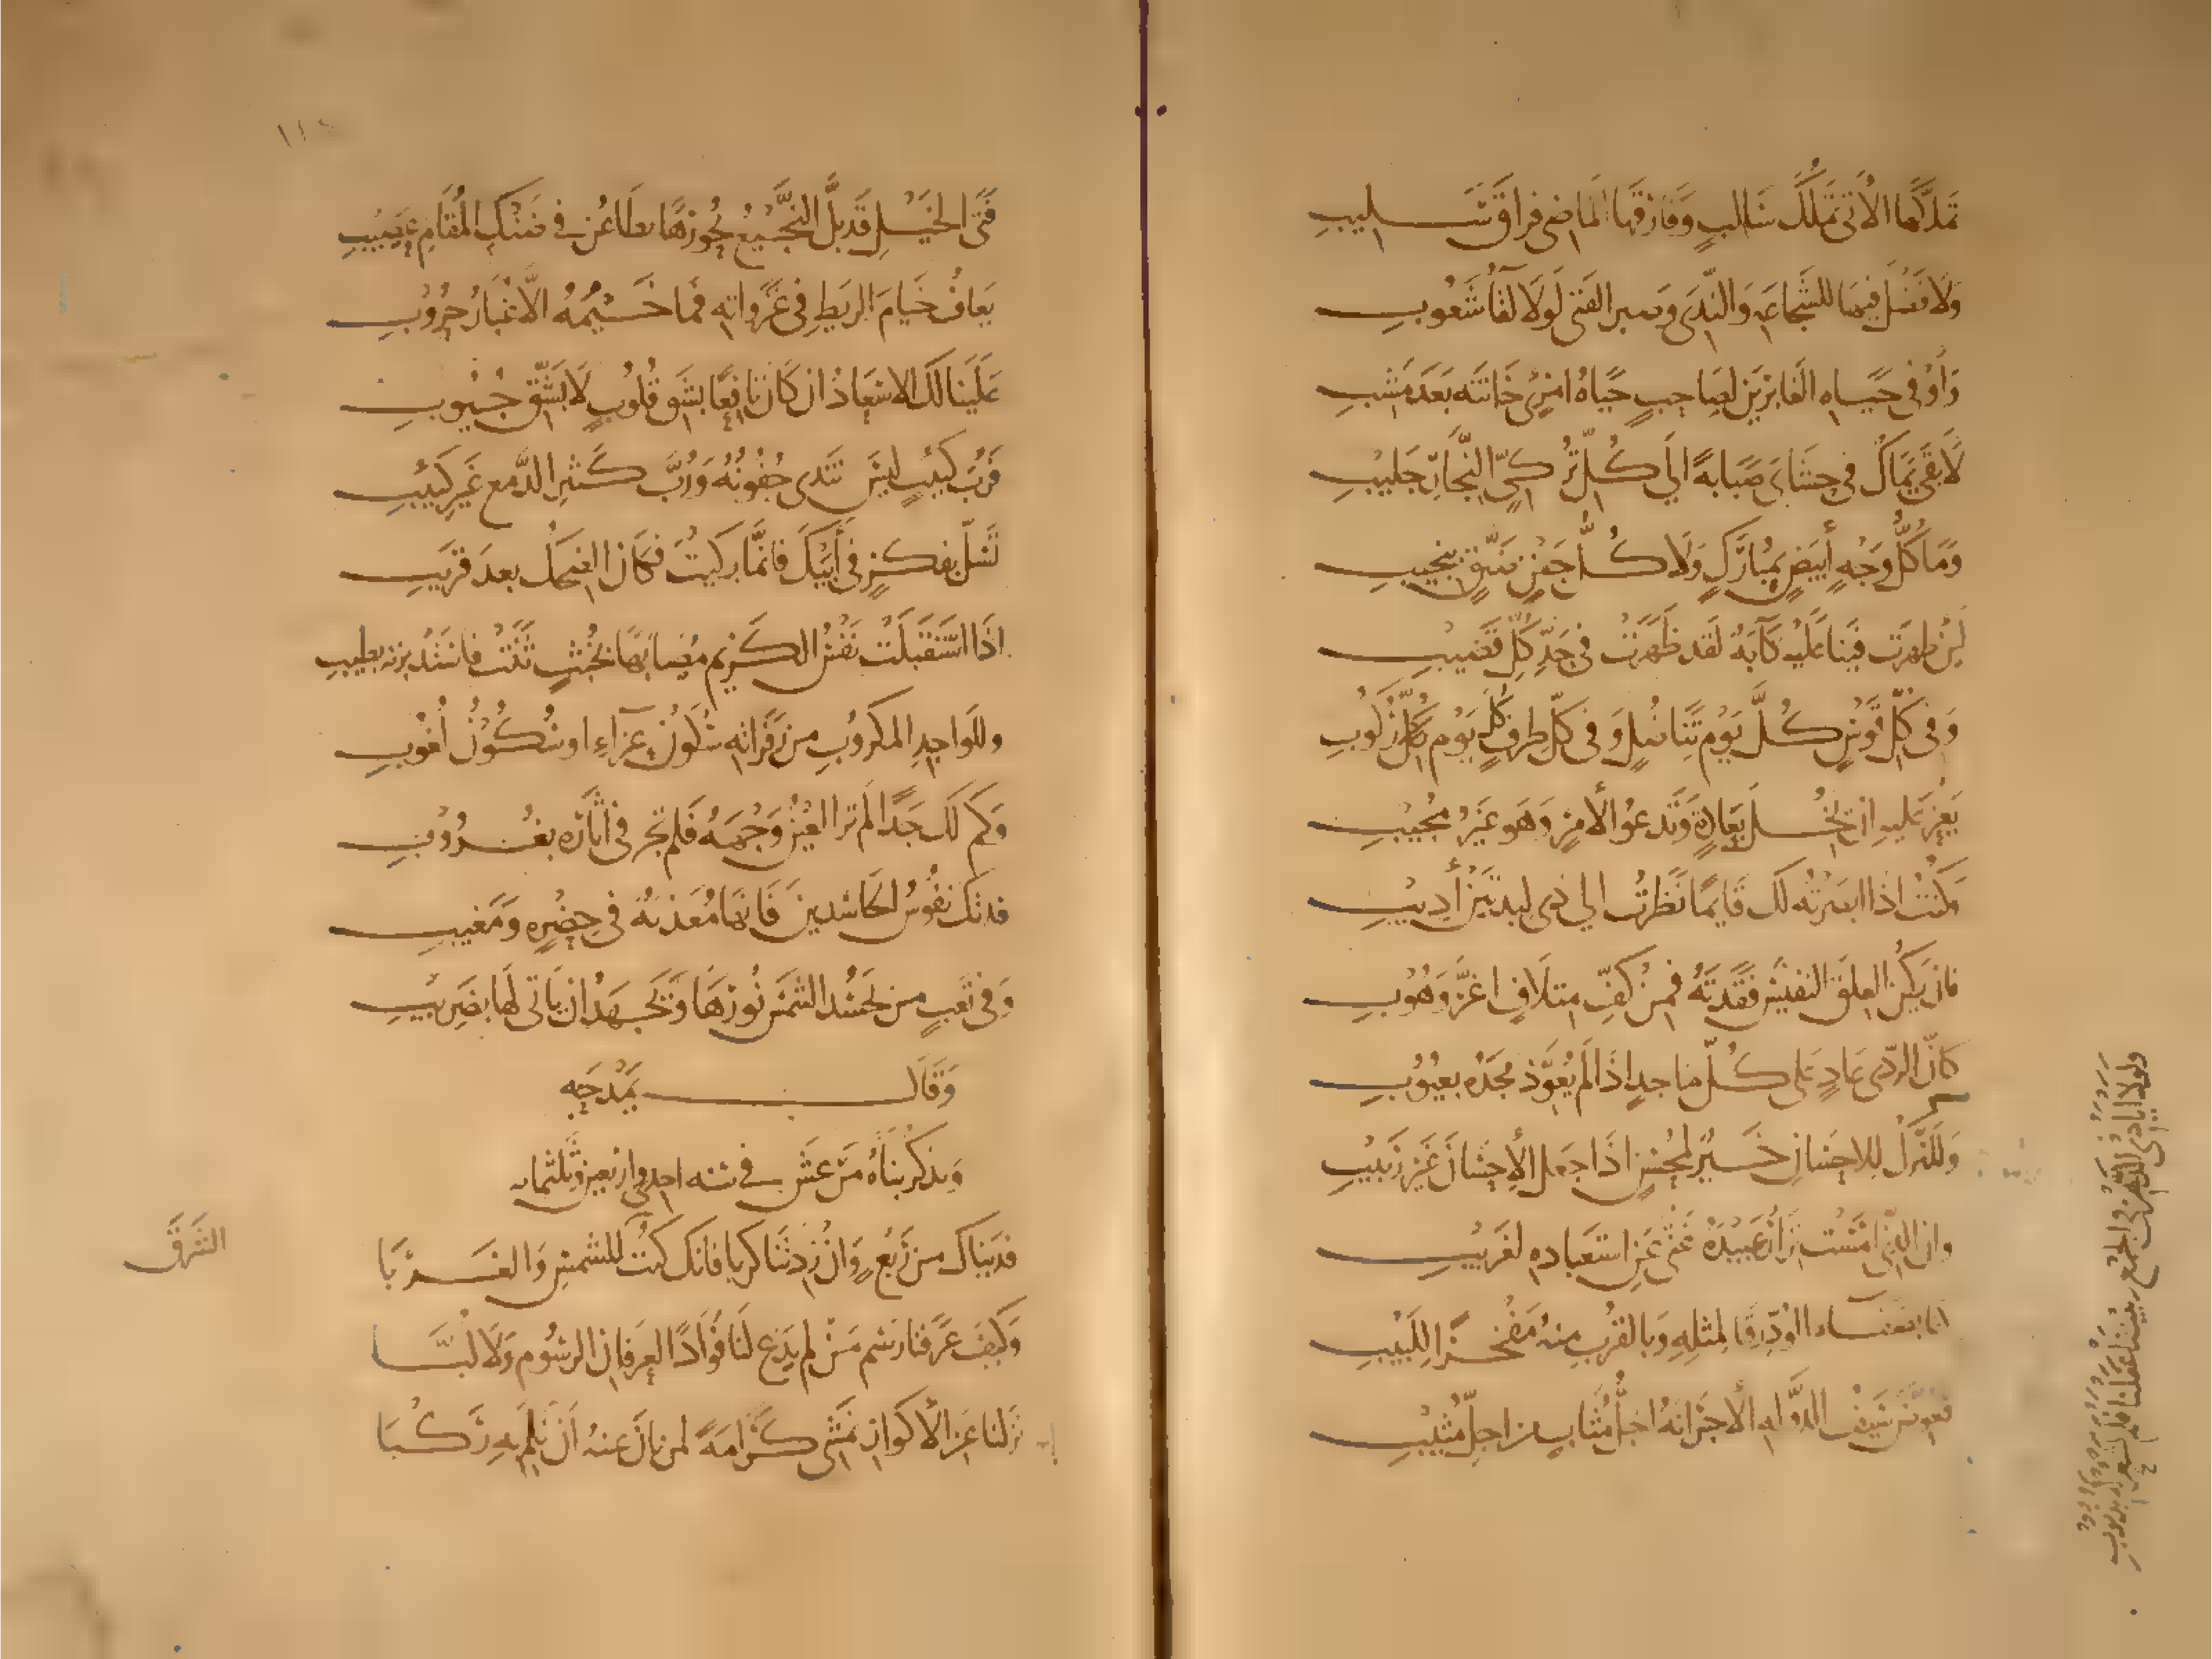 تَمَلَّكَها الآتي تَمَلُّكَ سَالبٍ وَفَارَقَها المَاضي فراقَ سَليبِ
وَلَا فَضْلَ فيها للشَّجَاعَةِ وَالنَّدَى وَصبر الفَتى لَوْلَا لقآ شَعُوبِ
وَأوْفى حَيَاةِ الغَابِرينَ لصَاحِبٍ حَيَاةُ امْرِئٍ خَانَتْه بَعْدَ مَشيبِ
لَأبْقَى يَمَاكُ في حَشَايَ صَبَابةً الي كُلِّ تُركيِّ النِّجَارِ جَليبِ
وَمَا كُلُّ وَجْهٍ أَبيَضٍ بمُبَارَكٍ وَلَا كُلُّ جَفْنٍ ضَيِّقٍ بنَجيبِ
لَئِن ظهرَت فينَا عَلَيْهِ كَآبَةٌ لَقد ظَهَرَتْ في حَدِّ كُلِّ قَضيبِ
وَفي كُلِّ قَوْسٍ كُلَّ يَوْمِ تَنَاضُلٍ وَفي كلِّ طِرفٍ كُلَّ يَوْمِ رُكُوبِ
يَعِزُّ عَليهِ ان يُخِلَّ بعَادةٍ وَتَدعُو لأمرٍ وَهو غَيرُ مُجيبِ
وَكُنْتُ اذَا ابصَرْتُه لَكَ قَايمًا نَظَرْتُ الي ذي لِبدتَيْن أَديبِ
فان يَكُن العِلقَ النفيسَ فَقَدْتَهُ فمِنْ كفِّ مِتلَافٍ اغَرَّ وَهُوبِ
كَانَّ الرَّدَى عَادٍ عَلى كُلِّ ماجدٍ اذَا لَمْ يُعَوِّذ مَجْدَه بعيُوبِ
وَلَلتَّركُ للاحسَانِ خَيْرٌ لمُحْسِنٍ اذَا جعَلَ الأحْسَانَ غَيرَ رَبيبِ
وان الذي امْسَتْ نِزَارٌ عَبيدَهُ غَنيٌّ عَنِ استعبَادهِ لغَريبِ
كفى بصَفاء الوُدِّ رِقًّا لمثلِهِ وَبالقُرْبِ منهُ مَفْخرًا للَبيبِ
فعُوِّضَ سَيفُ الدَّوْلَةِ الأجْرَ انَّهُ اجَلُّ مُثَابٍ من اجَلِّ مُثيبِ
ولولا ايادي الدهر في الجمع بيننا غفلنا فلم نشعر له بذنوبِ
فَتَى الخَيْلِ قَد بَلَّ النَّجيعُ نُحُورَهَا يطَاعُن في ضَنْكِ المُقَامِ عَصيبِ
يَعَافُ خيَامَ الرَيطِ في غَزَواتِه فَما خَيْمُهُ الَّا غُبَارُ حُرُوبِ
عَلَينَا لَكَ الاسْعَادُ ان كَانَ نَافِعًا بشَقِ قُلُوبٍ لَا بشَقِّ جُيُوبِ
فَرُبَّ كَئيبٍ ليسَ تَنْدى جُفُونُهُ وَرُبَّ كَثيرِ الدَّمع غَيرِ كَئيبِ
تَسَلَّ بفكرٍ في أَبَيْكَ فانَّمَا بَكيْتَ فكَانَ الضحكُ بعدَ قَريبِ
اذَا اسْتَقْبَلَتْ نَفْسُ الكَريمِ مُصَابَهَا بخُبْثٍ ثَنَتْ فاسْتَدبَرَته بطيبِ
وللوَاجِدِ المكرُوبِ من زَفَراتِه سُكُونُ عَزَاءٍ او سُكُونُ لُغُوبِ
وَكَم لَكَ جَدًّا لَم تَرَ العَيْنُ وَجْهَهُ فَلم تَجْرِ في آثَارِه بغُروُبِ
فدتكَ نفُوسُ الحَاسدينَ فَانهَا مُعَذبَةٌ في حَضْرَةٍ وَمَغيبِ
وَفي تَعَبٍ من يَحْسُد الشَمْسَ نُورَهَا وَيَجْهَدُ ان يَأتي لَها بضَريبِ
وَقَالَ يمْدَحُهِ
وَيذكر بنَاهُ مَرْعَشَ في سنه احدى واربعين وثلثمايه
فدَينَاكَ من رَبْعٍ وَانْ زِدتَنَا كربا فانك كنتَ للشمسِ وَالغَربَا
الشرق
وَكَيْفَ عَرَفنَا رَسْم مَنْ لم يَدَعْ لنَا فؤَادًا لعِرفَانِ الرسُوم وَلَا لُبَّا
نَزَلنَا عَن الأكْوَارِ نَمْشي كَرَامَةً لمن بَانَ عنهُ اَنْ نُلِمَّ بِهِ رَكْبَا